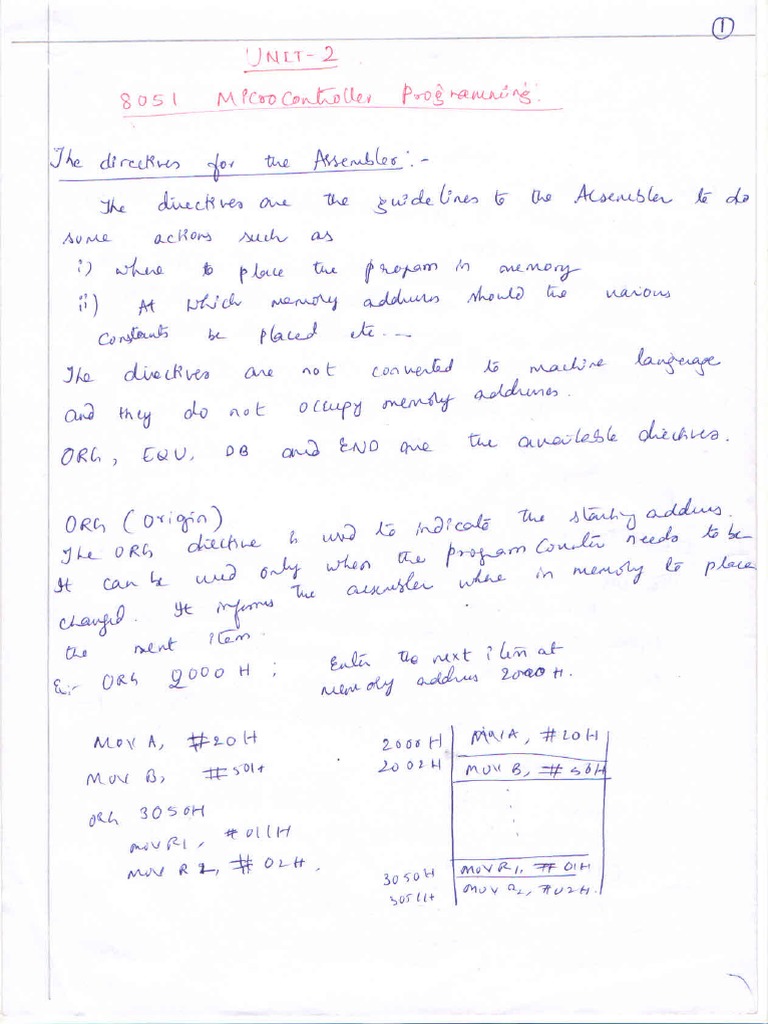 1
UNIT-2
8051 Microcontroller Programming:
The directives for the Assembler:-
The directives are the guidelines to the Assembler to do
some actions such as
i) where to place the program in memory
ii) At which memory address should the various
constants be placed etc.--
The directives are not converted to machine language
and they do not occupy memory addresses.
ORG, EQU, DB and END are the available directives.
ORG (Origin)
The ORG directive is used to indicate the starting address.
It can be used only when the program counter needs to be
changed. It informs the assembler where in memory to place
the next item.
Ex:- ORG 2000H ; Enter the next item at
memory address 2000H.
MOV A, #20H
MOV B, #50H
ORG 3050H
MOV R1, #01H
MOV R2, #02H.
2000H MOV A, #20H
2002H MOV B, #50H
3050H MOV R1, #01H
3051H MOV R2, #02H.